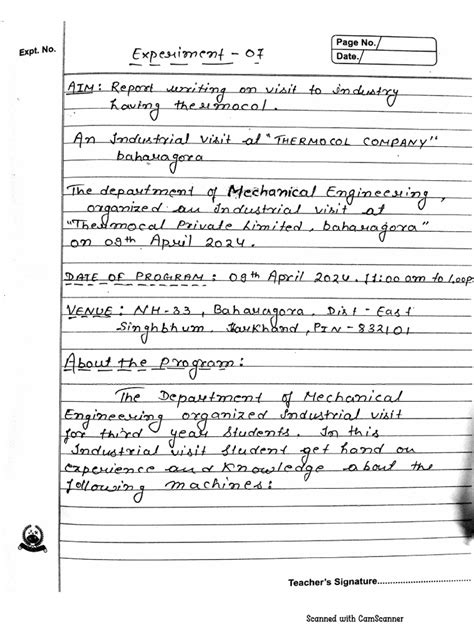 Expt. No.
Experiment - 07
Page No./
Date./
AIM: Report writing on visit to industry
having thermocol.
An Industrial Visit at "THERMOCOL COMPANY"
baharagora
The department of Mechanical Engineering,
organized an Industrial visit at
"Thermocal Private Limited, baharagora"
on 09th April 2024.
DATE OF PROGRAM: 09th April 2024. 11:00 am to 1.00p
VENUE: NH-33, Baharagora, Dist - East
Singhbhum, Jharkhand, PIN - 832101
About the program:
The Department of Mechanical
Engineering organized Industrial visit
for third year students. In this
Industrial visit student get hand on
experience and knowledge about the
following machines:
Teacher's Signature
Scanned with CamScanner